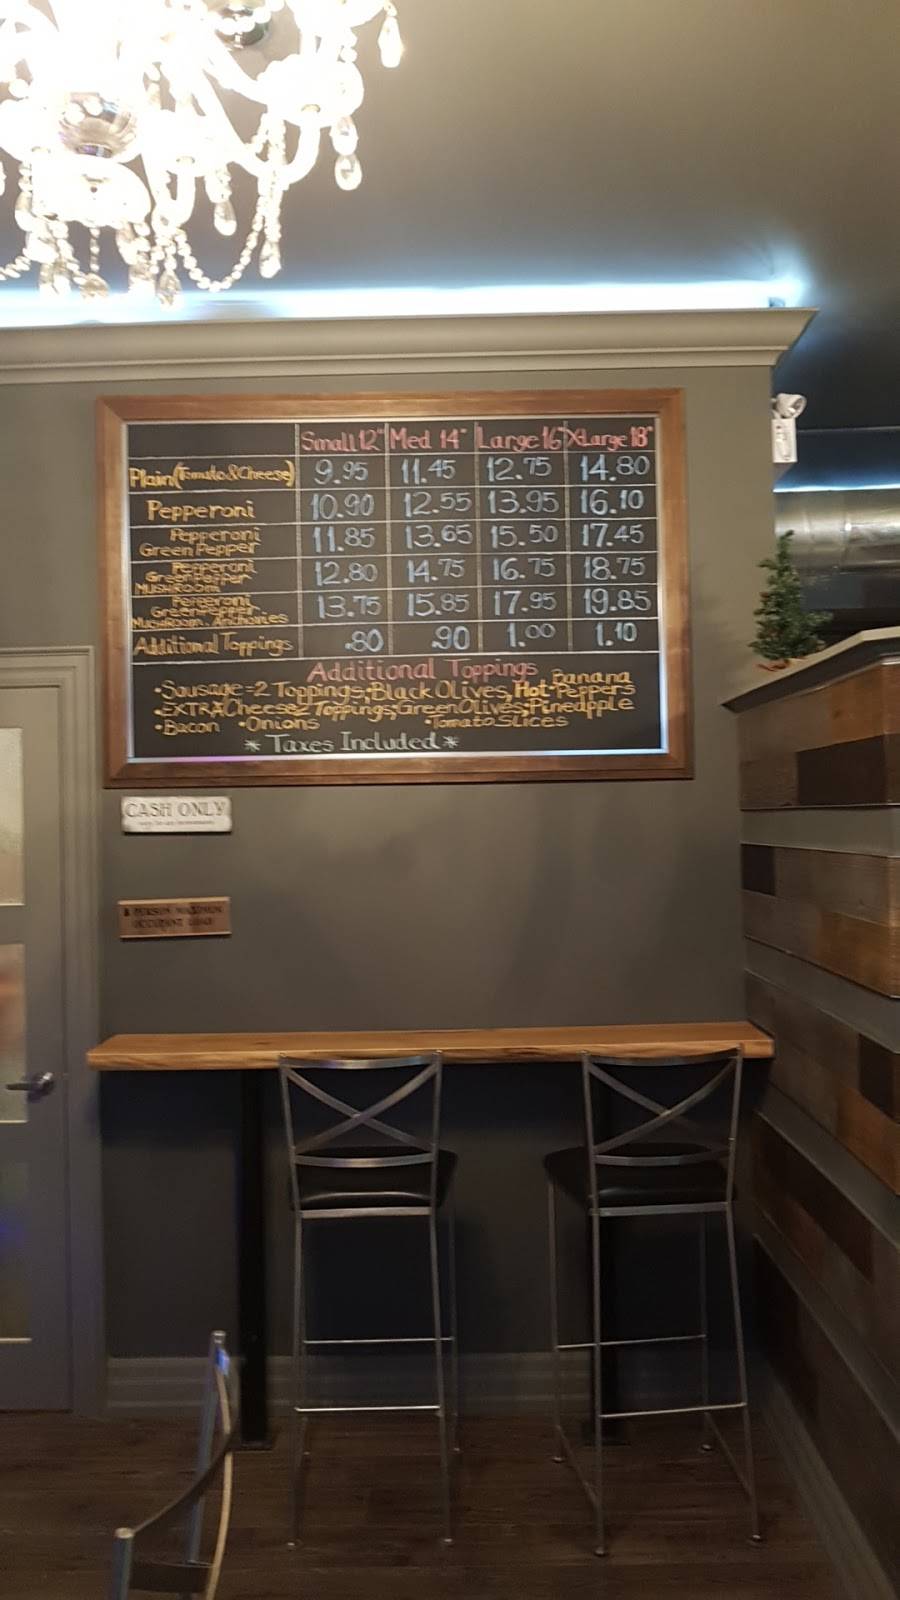 Small 12" Med 14" Large 16" XLarge 18"
Plain (Tomato & Cheese) 9.95 11.45 12.75 14.80
Pepperoni 10.90 12.55 13.95 16.10
Pepperoni
Green Pepper 11.85 13.65 15.50 17.45
Pepperoni
Green Pepper
MUSHROOM 12.80 14.75 16.75 18.75
Pepperoni
Green Pepper
MUSHROOM, Anchovies 13.75 15.85 17.95 19.85
Additional Toppings .80 .90 1.00 1.10
Additional Toppings
•Sausage=2 Toppings •Black Olives, Hot Banana Peppers
•EXTRA Cheese 2 Toppings, Green Olives •Pineapple
•Bacon •Onions •Tomato SLices
* Taxes Included *
CASH ONLY
8 PERSON MAXIMUM
OCCUPANT LOAD